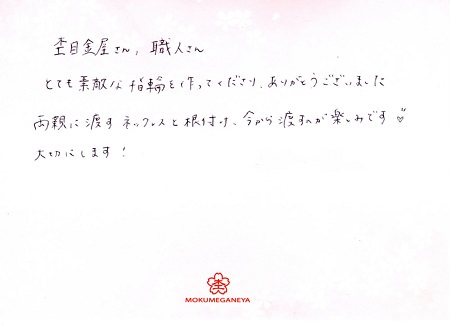 杢目金屋さん、職人さん
とても素敵な指輪を作ってくださり、ありがとうございました
両親に渡すネックレスと根付け、今から渡すのが楽しみです
大切にします!
杢
MOKUMEGANEYA